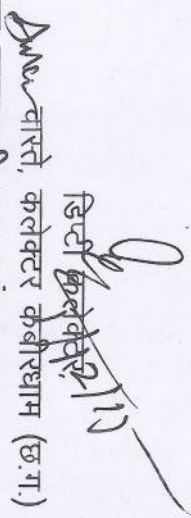 डिप्टी कलेक्टर
वास्ते, कलेक्टर कबीरधाम (छ.ग.)